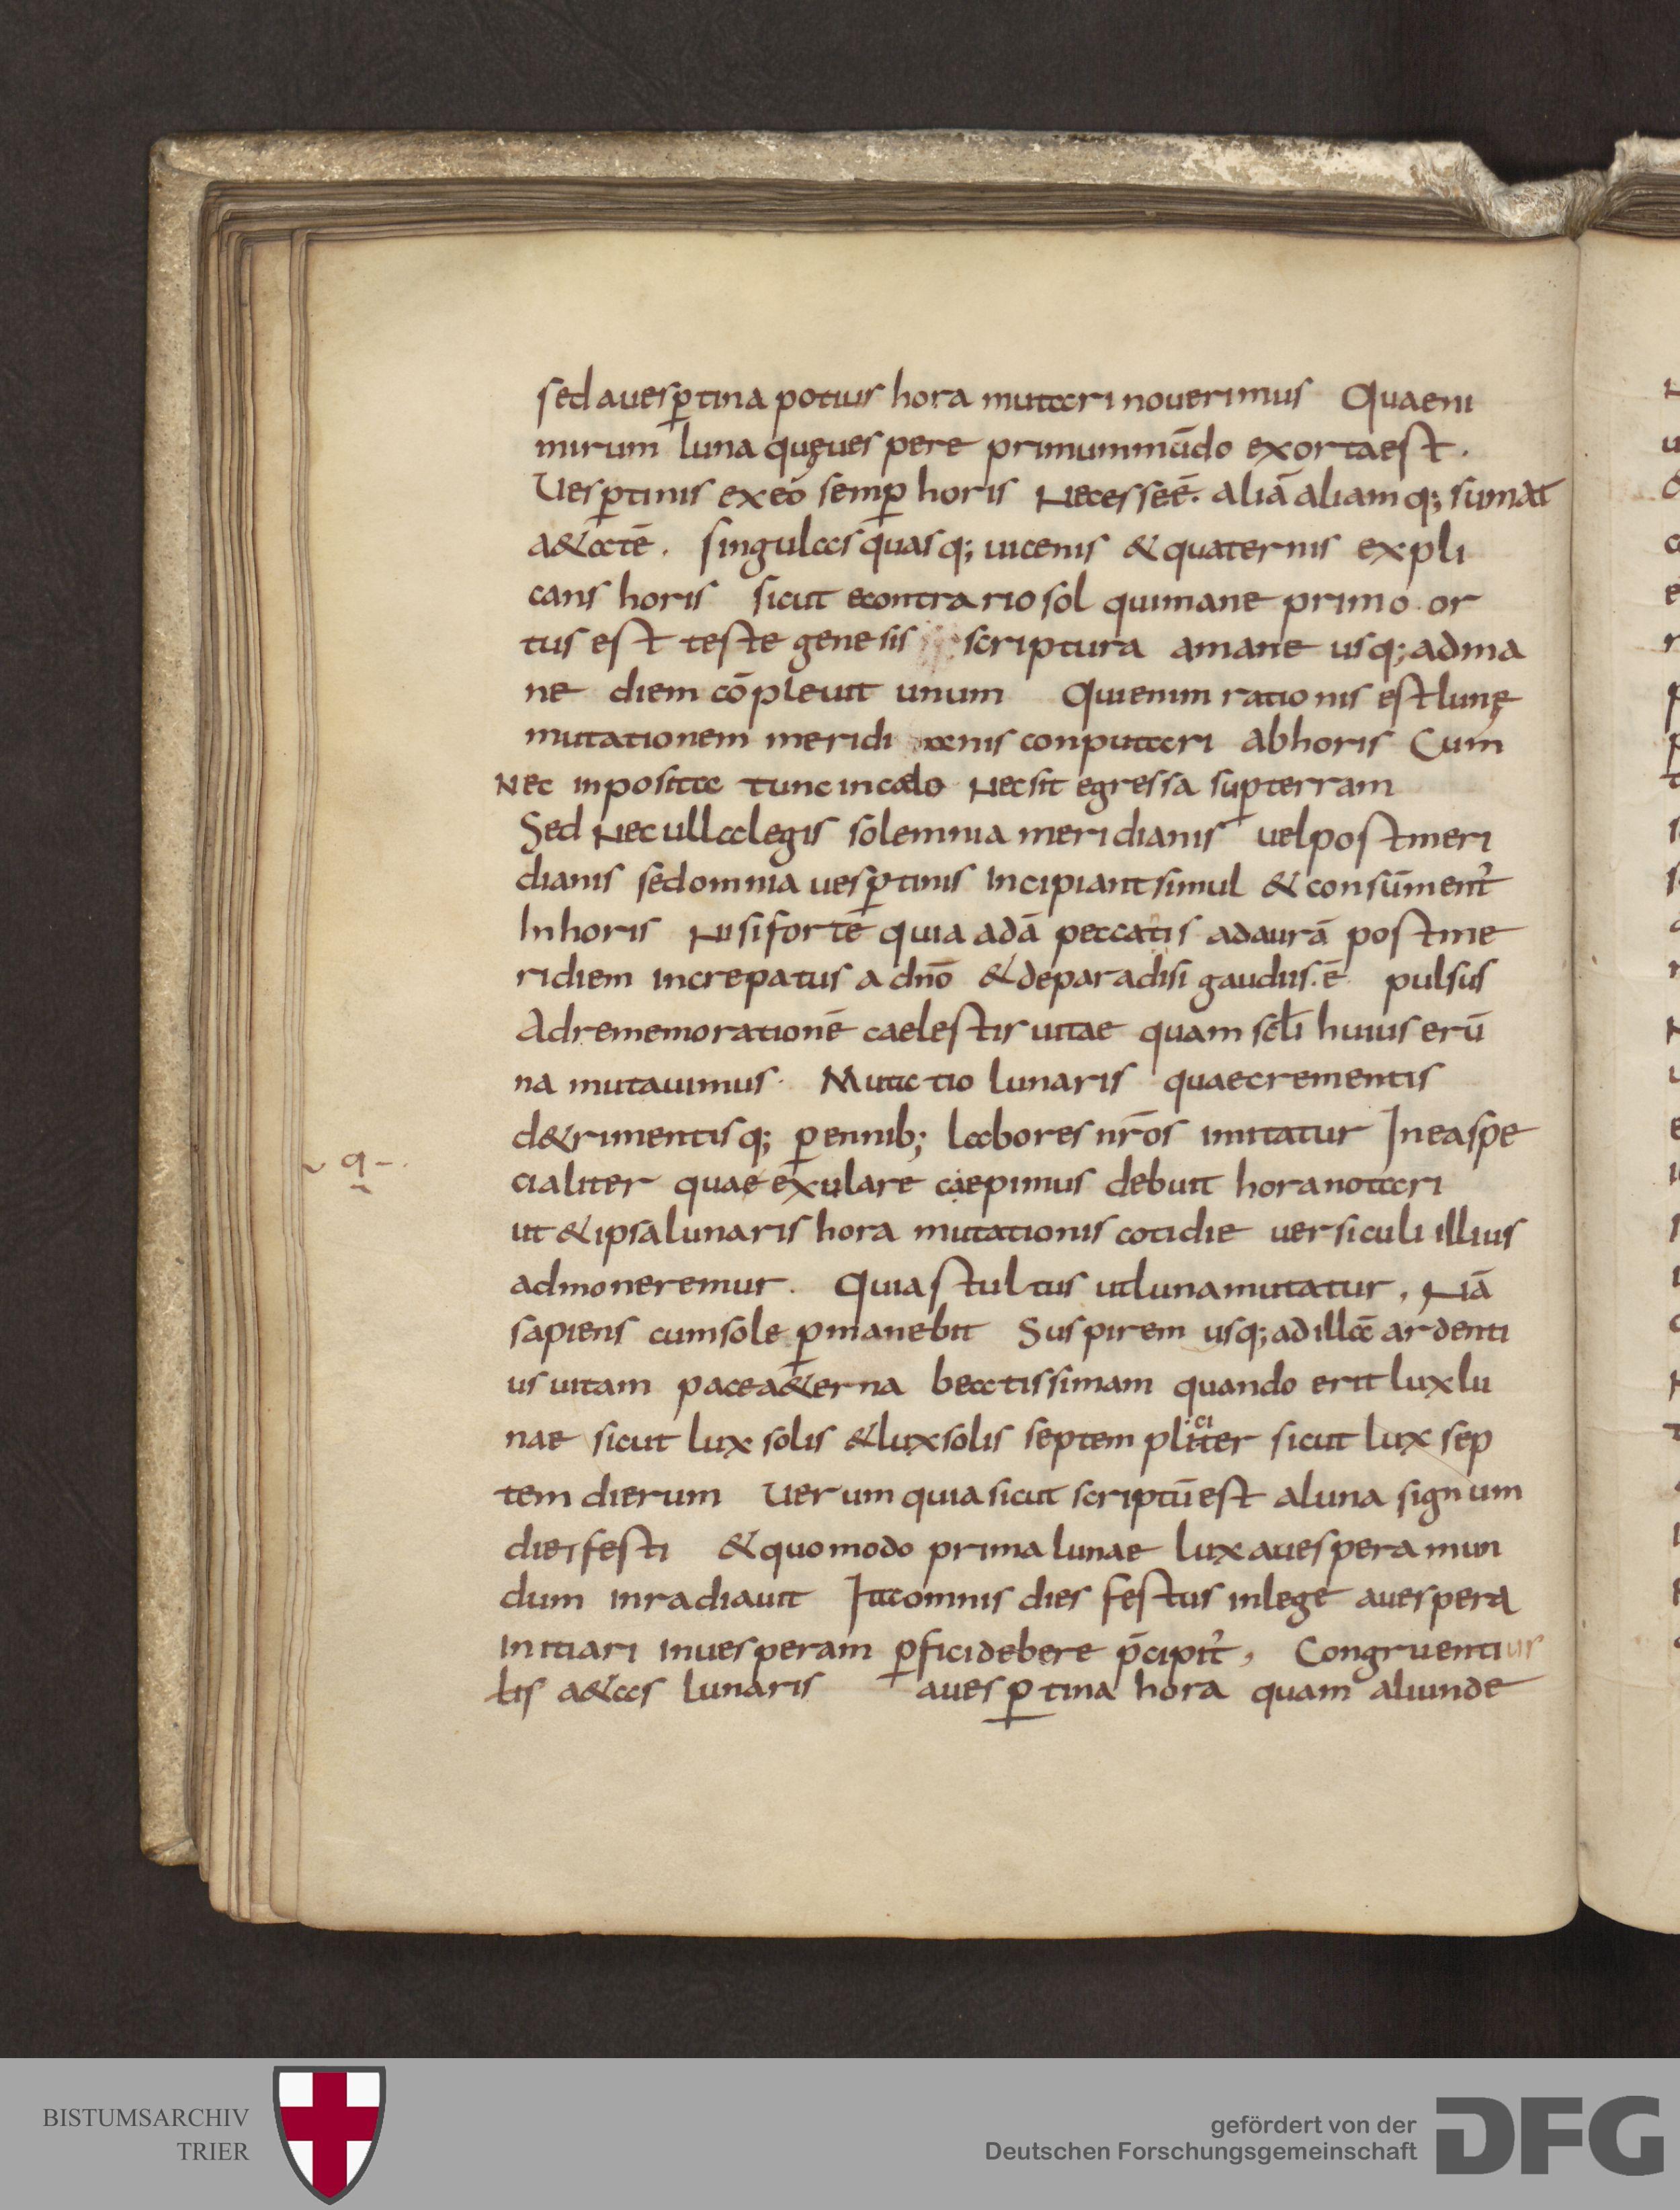 sed auesꝑtina potius hora mutari nouerimus Quaeni
mirum luna quę uespere primum mūdo exorta est.
Uesꝑtinis ex eo semꝑ horis Necesse ē. aliā aliamq; sumat
a&atē. singulas quasq; uicenis & quaternis expli
cans horis sicut econtrario sol qui mane primo or
tus est teste genesis scriptura amane usq; ad ma
ne diem cōpleuit unum Qui enim rationis est lunę
mutationem meridi anis conputari ab horis Cum
Nec inposita tunc in caelo Nec sit egressa suꝑ terram
Sed Nec ulla legis solemnia meridianis uel postmeri
dianis sed omnia uesꝑtinis Incipiant simul & consūment᷑
In horis Nisi fortē quia adā peccatis ad aurā post me
ridiem increpatus a dn̄o & de paradisi gaudiis. ē. pulsus
Ad rememorationē caelestis uitae quam scl̄i huius erū
na mutauimus. Mutatio lunaris quae crementis
d&rimentisq; ꝑennib; labores nr̄os imitatur In ea spe
cialiter quae exulare caepimus debuit hora notari
ut & ipsa lunaris hora mutationis cotidie uersiculi illius
admoneremur. Quia stultus ut luna mutatur, Nā
sapiens cum sole ꝑmanebit Suspirem usq; ad illā ardenti
us uitam pace a&erna beatissimam quando erit lux lu
nae sicut lux solis & lux solis septem pliciter sicut lux sep
tem dierum Uerum quia sicut scriptū est a luna signum
diei festi & quomodo prima lunae lux a uespera mun
dum inradiauit Ita omnis dies festus in lege a uespera
Initiari in uesperam ꝑfici debere p̄cipit᷑, Congruentius
tis a&as lunaris a uesꝑtina hora quam aliunde
q-.
BISTUMSARCHIV
TRIER
gefördert von der
Deutschen Forschungsgemeinschaft
DFG